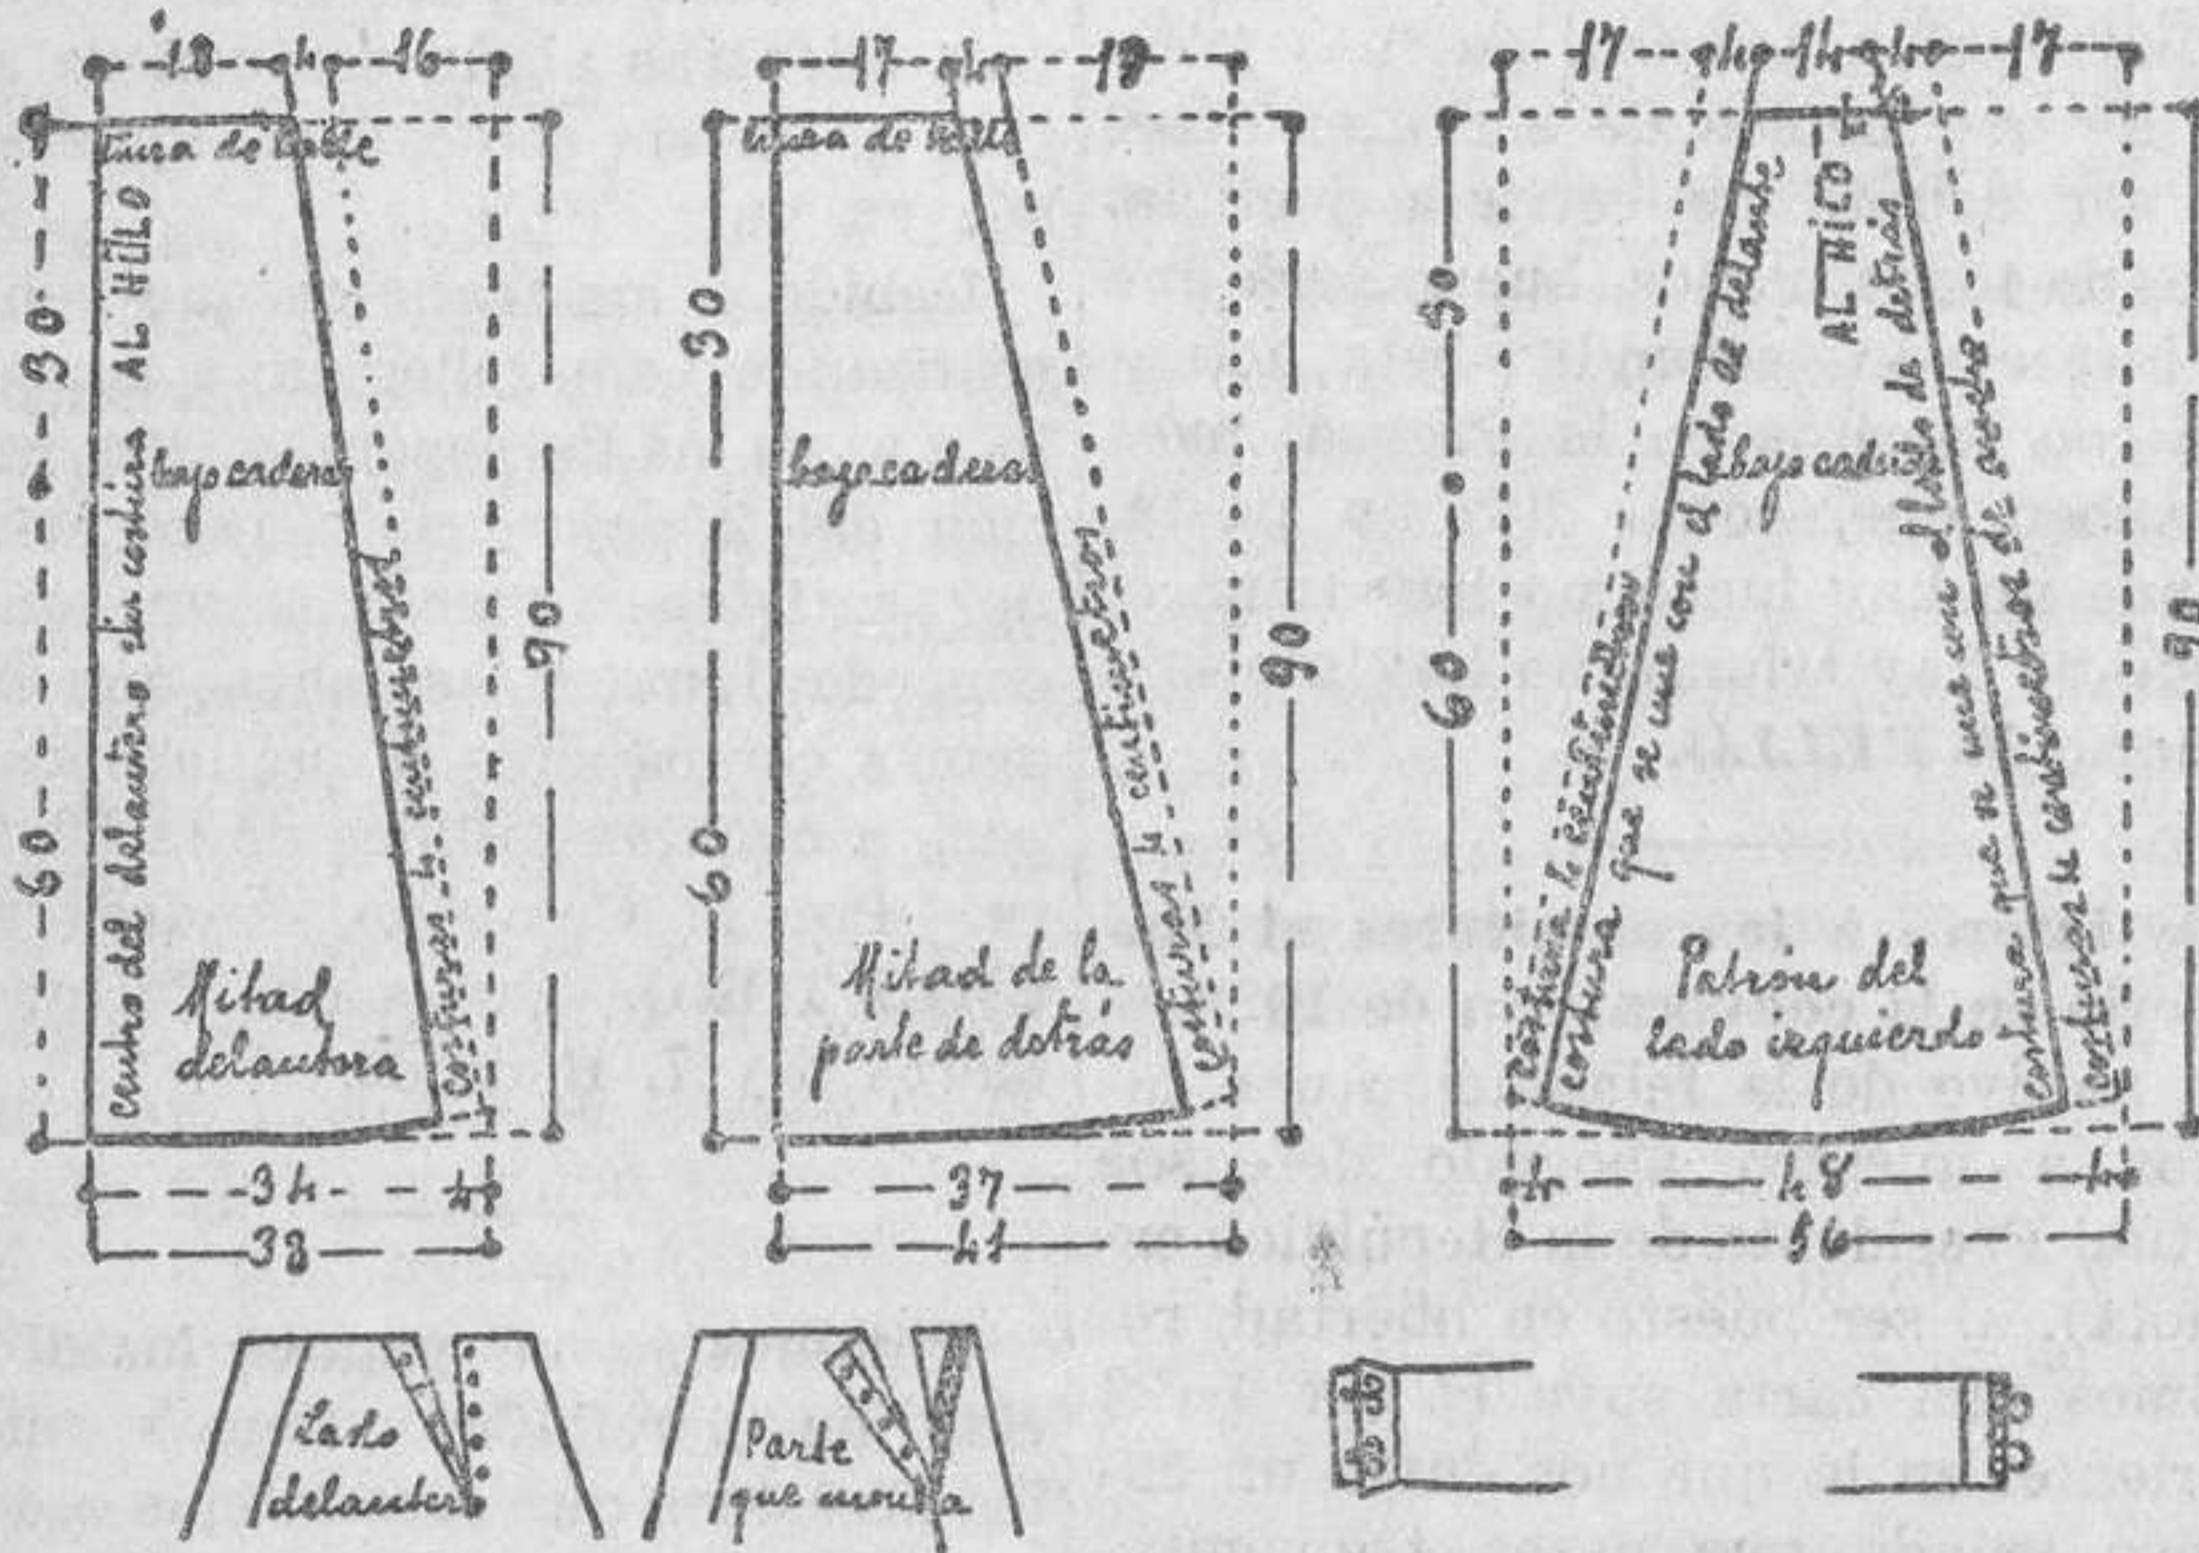 18 4 16
línea de talle
AL HILO
30
60
90
centro del delantero sin costura
bajo caderas
costuras 4 centimetros
Mitad
delantera
34 4
38
17 4
línea de talle
30
60
90
bajo caderas
costuras 4 centimetros
Mitad de la
parte de detrás
37
41
17 4 14 4 17
30
60
90
AL HILO
bajo caderas
costura 4 centimetros
costura que se une con el lado de delante
costura que se une con el lado de detrás
costuras 4 centimetros de
Patrón del
lado izquierdo
4 48 4
56
Lado
delantero
Parte
que monta